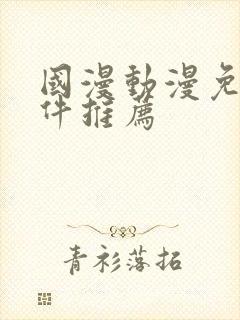 國漫動漫免
件推薦
青衫落拓